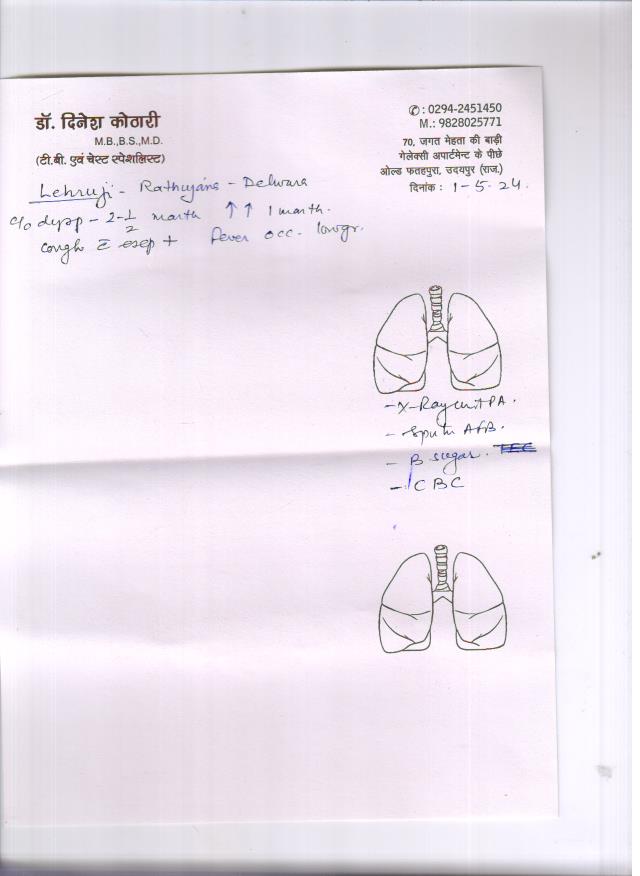 डॉ. दिनेश कोठारी
M.B.,B.S.,M.D.
(टी.बी. एवं चेस्ट स्पेशलिस्ट)
✆ : 0294-2451450
M.: 9828025771
70, जगत मेहता की बाड़ी
गेलेक्सी अपार्टमेन्ट के पीछे
ओल्ड फतहपुरा, उदयपुर (राज.)
दिनांक : 1-5-24.
Lehruji - - Delwara
c/o - 2-1/2 month ↑↑ 1 month.
cough c̄ + fever occ. lowgr.
- X-Ray PA.
- Sputm AFB.
- B sugar.
- CBC